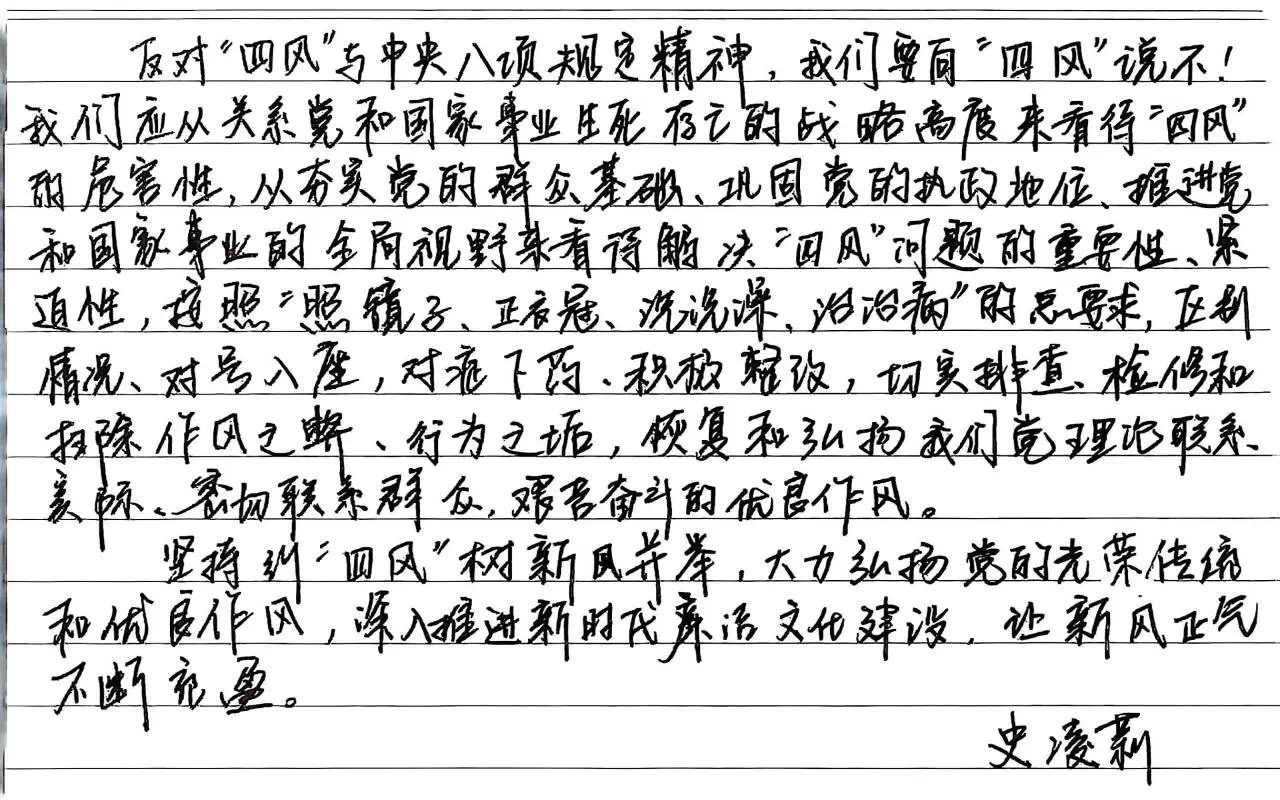 反对“四风”与中央八项规定精神，我们要向“四风”说不！
我们应从关系党和国家事业生死存亡的战略高度来看待“四风”
的危害性，从夯实党的群众基础、巩固党的执政地位、推进党
和国家事业的全局视野来看待解决“四风”问题的重要性、紧
迫性，按照“照镜子、正衣冠、洗洗澡、治治病”的总要求，区别
情况、对号入座，对症下药、积极整改，切实排查、检修和
扫除作风之弊、行为之垢，恢复和弘扬我们党理论联系
实际、密切联系群众，艰苦奋斗的优良作风。
坚持纠“四风”树新风并举，大力弘扬党的光荣传统
和优良作风，深入推进新时代廉洁文化建设，让新风正气
不断充盈。
史凌莉